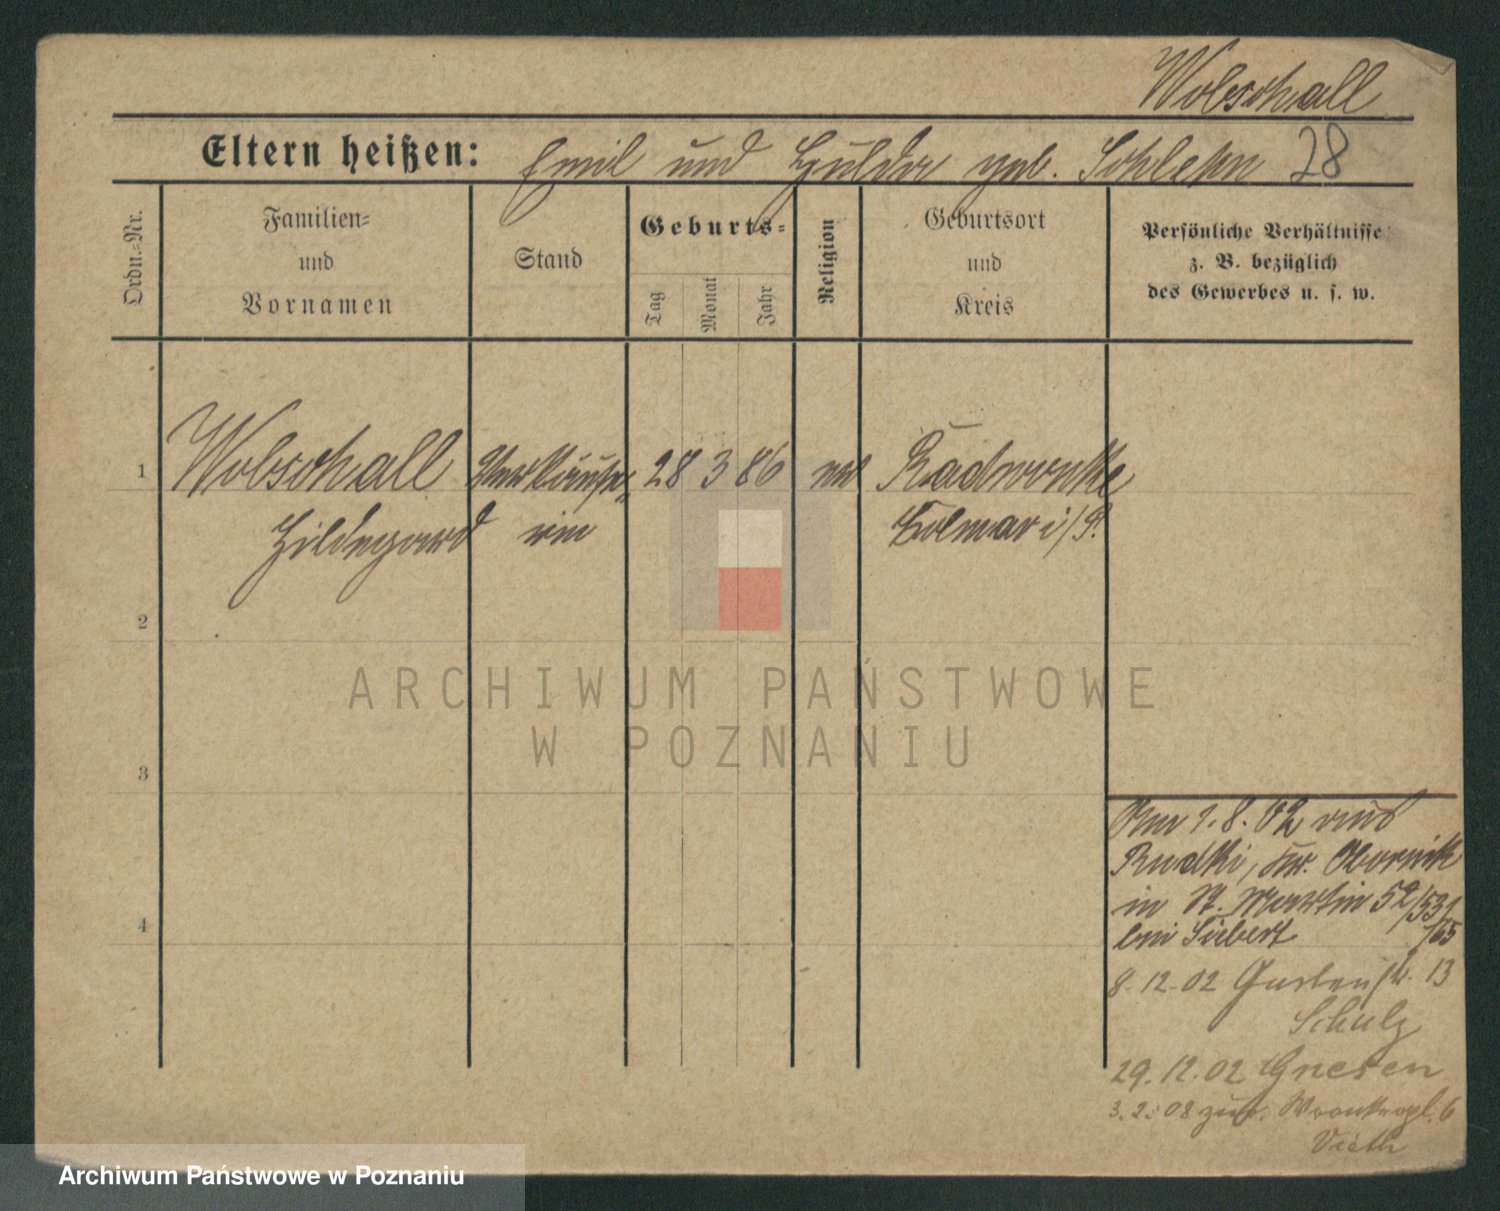 Wobschall
Eltern heißen: Emil und Hulda geb. Schlesn 28
Ordn.-Nr.
Familien-
und
Vornamen
Stand
Geburts-
Tag
Monat
Jahr
Religion
Geburtsort
und
Kreis
Persönliche Verhältnisse
z. B. bezüglich
des Gewerbes u. s. w.
1 Wobschall Verkäufe- 28 3 86 ev Radwonke
Hildegard rin Kolmar i/P.
2
3
4
Am 1.8.02 aus
Rudki, Kr. Obornik
in St. Martin 52/53
bei Siebert
8.12.02 Gartenstr. 13
Schulz
29.12.02 Gnesen
3.2.08 zur. Wronkerpl. 6
Vieth
ARCHIWUM PAŃSTWOWE
W POZNANIU
Archiwum Państwowe w Poznaniu